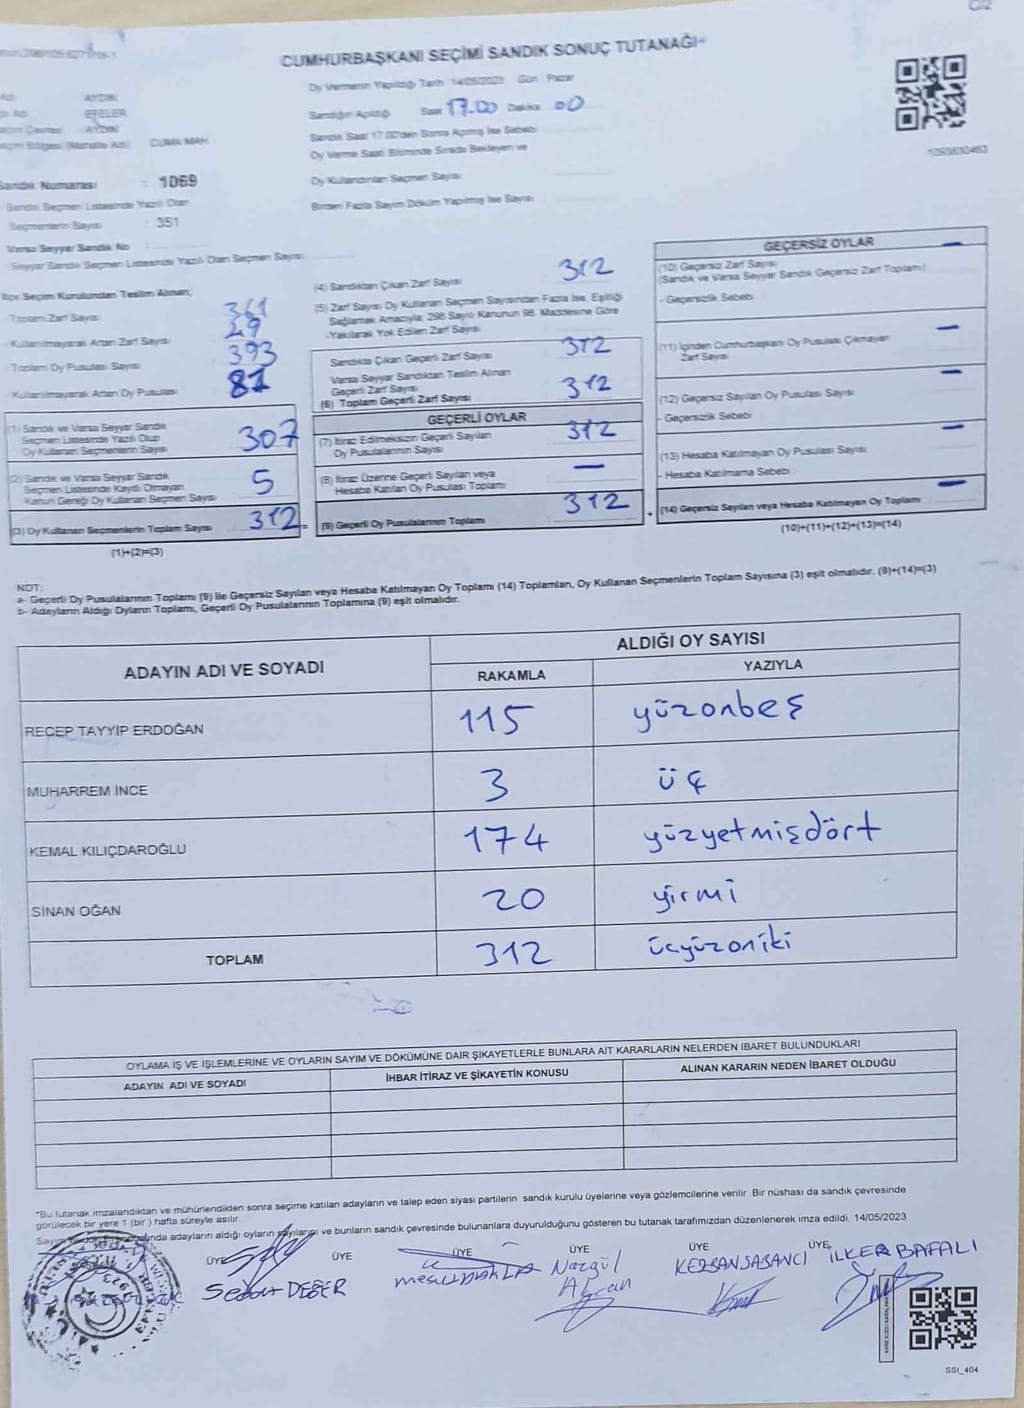 C/2
CUMHURBAŞKANI SEÇİMİ SANDIK SONUÇ TUTANAĞI*
Oy Vermenin Yapıldığı Tarih 14/05/2023 Gün Pazar
AYDIN
EFELER
AYDIN
CUMA MAH
Sandık Numarası : 1069
Sandık Seçmen Listesinde Yazılı Olan
Seçmenlerin Sayısı : 351
Varsa Seyyar Sandık No
Seyyar Sandık Seçmen Listesinde Yazılı Olan Seçmen Sayısı
Sandığın Açıldığı Saat 17.00 Dakika 00
Sandık Saat 17:00'den Sonra Açılmış İse Sebebi
Oy Verme Saati Bitiminde Sırada Bekleyen ve
Oy Kullandırılan Seçmen Sayısı
Birden Fazla Sayım Döküm Yapılmış İse Sayısı
İlçe Seçim Kurulundan Teslim Alınan;
Toplam Zarf Sayısı 361
Kullanılmayarak Artan Zarf Sayısı 49
Toplam Oy Pusulası Sayısı 393
Kullanılmayarak Artan Oy Pusulası 81
(1) Sandık ve Varsa Seyyar Sandık
Seçmen Listesinde Yazılı Olup
Oy Kullanan Seçmenlerin Sayısı 307
(2) Sandık ve Varsa Seyyar Sandık
Seçmen Listesinde Kayıtlı Olmayan
Kanun Gereği Oy Kullanan Seçmen Sayısı 5
(3) Oy Kullanan Seçmenlerin Toplam Sayısı 312 =
(1)+(2)=(3)
(4) Sandıktan Çıkan Zarf Sayısı 312
(5) Zarf Sayısı Oy Kullanan Seçmen Sayısından Fazla İse, Eşitliği
Sağlamak Amacıyla; 298 Sayılı Kanunun 98. Maddesine Göre
-Yakılarak Yok Edilen Zarf Sayısı
Sandıkta Çıkan Geçerli Zarf Sayısı 312
Varsa Seyyar Sandıktan Teslim Alınan
Geçerli Zarf Sayısı
(6) Toplam Geçerli Zarf Sayısı 312
GEÇERLİ OYLAR
(7) İtiraz Edilmeksizin Geçerli Sayılan
Oy Pusulalarının Sayısı 312
(8) İtiraz Üzerine Geçerli Sayılan veya
Hesaba Katılan Oy Pusulası Toplamı —
(9) Geçerli Oy Pusulalarının Toplamı 312 +
GEÇERSİZ OYLAR
(10) Geçersiz Zarf Sayısı —
(Sandık ve Varsa Seyyar Sandık Geçersiz Zarf Toplamı)
- Geçersizlik Sebebi
(11) İçinden Cumhurbaşkanı Oy Pusulası Çıkmayan —
Zarf Sayısı
(12) Geçersiz Sayılan Oy Pusulası Sayısı —
- Geçersizlik Sebebi
(13) Hesaba Katılmayan Oy Pusulası Sayısı —
- Hesaba Katılmama Sebebi
(14) Geçersiz Sayılan veya Hesaba Katılmayan Oy Toplamı —
(10)+(11)+(12)+(13)=(14)
NOT:
a- Geçerli Oy Pusulalarının Toplamı (9) ile Geçersiz Sayılan veya Hesaba Katılmayan Oy Toplamı (14) Toplamları, Oy Kullanan Seçmenlerin Toplam Sayısına (3) eşit olmalıdır. (9)+(14)=(3)
b- Adayların Aldığı Oyların Toplamı, Geçerli Oy Pusulalarının Toplamına (9) eşit olmalıdır.
ADAYIN ADI VE SOYADI
ALDIĞI OY SAYISI
RAKAMLA YAZIYLA
RECEP TAYYİP ERDOĞAN 115 yüzonbeş
MUHARREM İNCE 3 üç
KEMAL KILIÇDAROĞLU 174 yüzyetmişdört
SİNAN OĞAN 20 yirmi
TOPLAM 312 üçyüzoniki
OYLAMA İŞ VE İŞLEMLERİNE VE OYLARIN SAYIM VE DÖKÜMÜNE DAİR ŞİKAYETLERLE BUNLARA AİT KARARLARIN NELERDEN İBARET BULUNDUKLARI
ADAYIN ADI VE SOYADI İHBAR İTİRAZ VE ŞİKAYETİN KONUSU ALINAN KARARIN NEDEN İBARET OLDUĞU
*Bu tutanak imzalandıktan ve mühürlendikten sonra seçime katılan adayların ve talep eden siyasi partilerin sandık kurulu üyelerine veya gözlemcilerine verilir. Bir nüshası da sandık çevresinde
görülecek bir yere 1 (bir ) hafta süreyle asılır.
adayların aldığı oyların sayılarını ve bunların sandık çevresinde bulunanlara duyurulduğunu gösteren bu tutanak tarafımızdan düzenlenerek imza edildi. 14/05/2023
ÜYE ÜYE ÜYE ÜYE ÜYE ÜYE
DEĞER
Nazgül
KERBAN SABANCI
İLKER BAFALI
SSİ_404